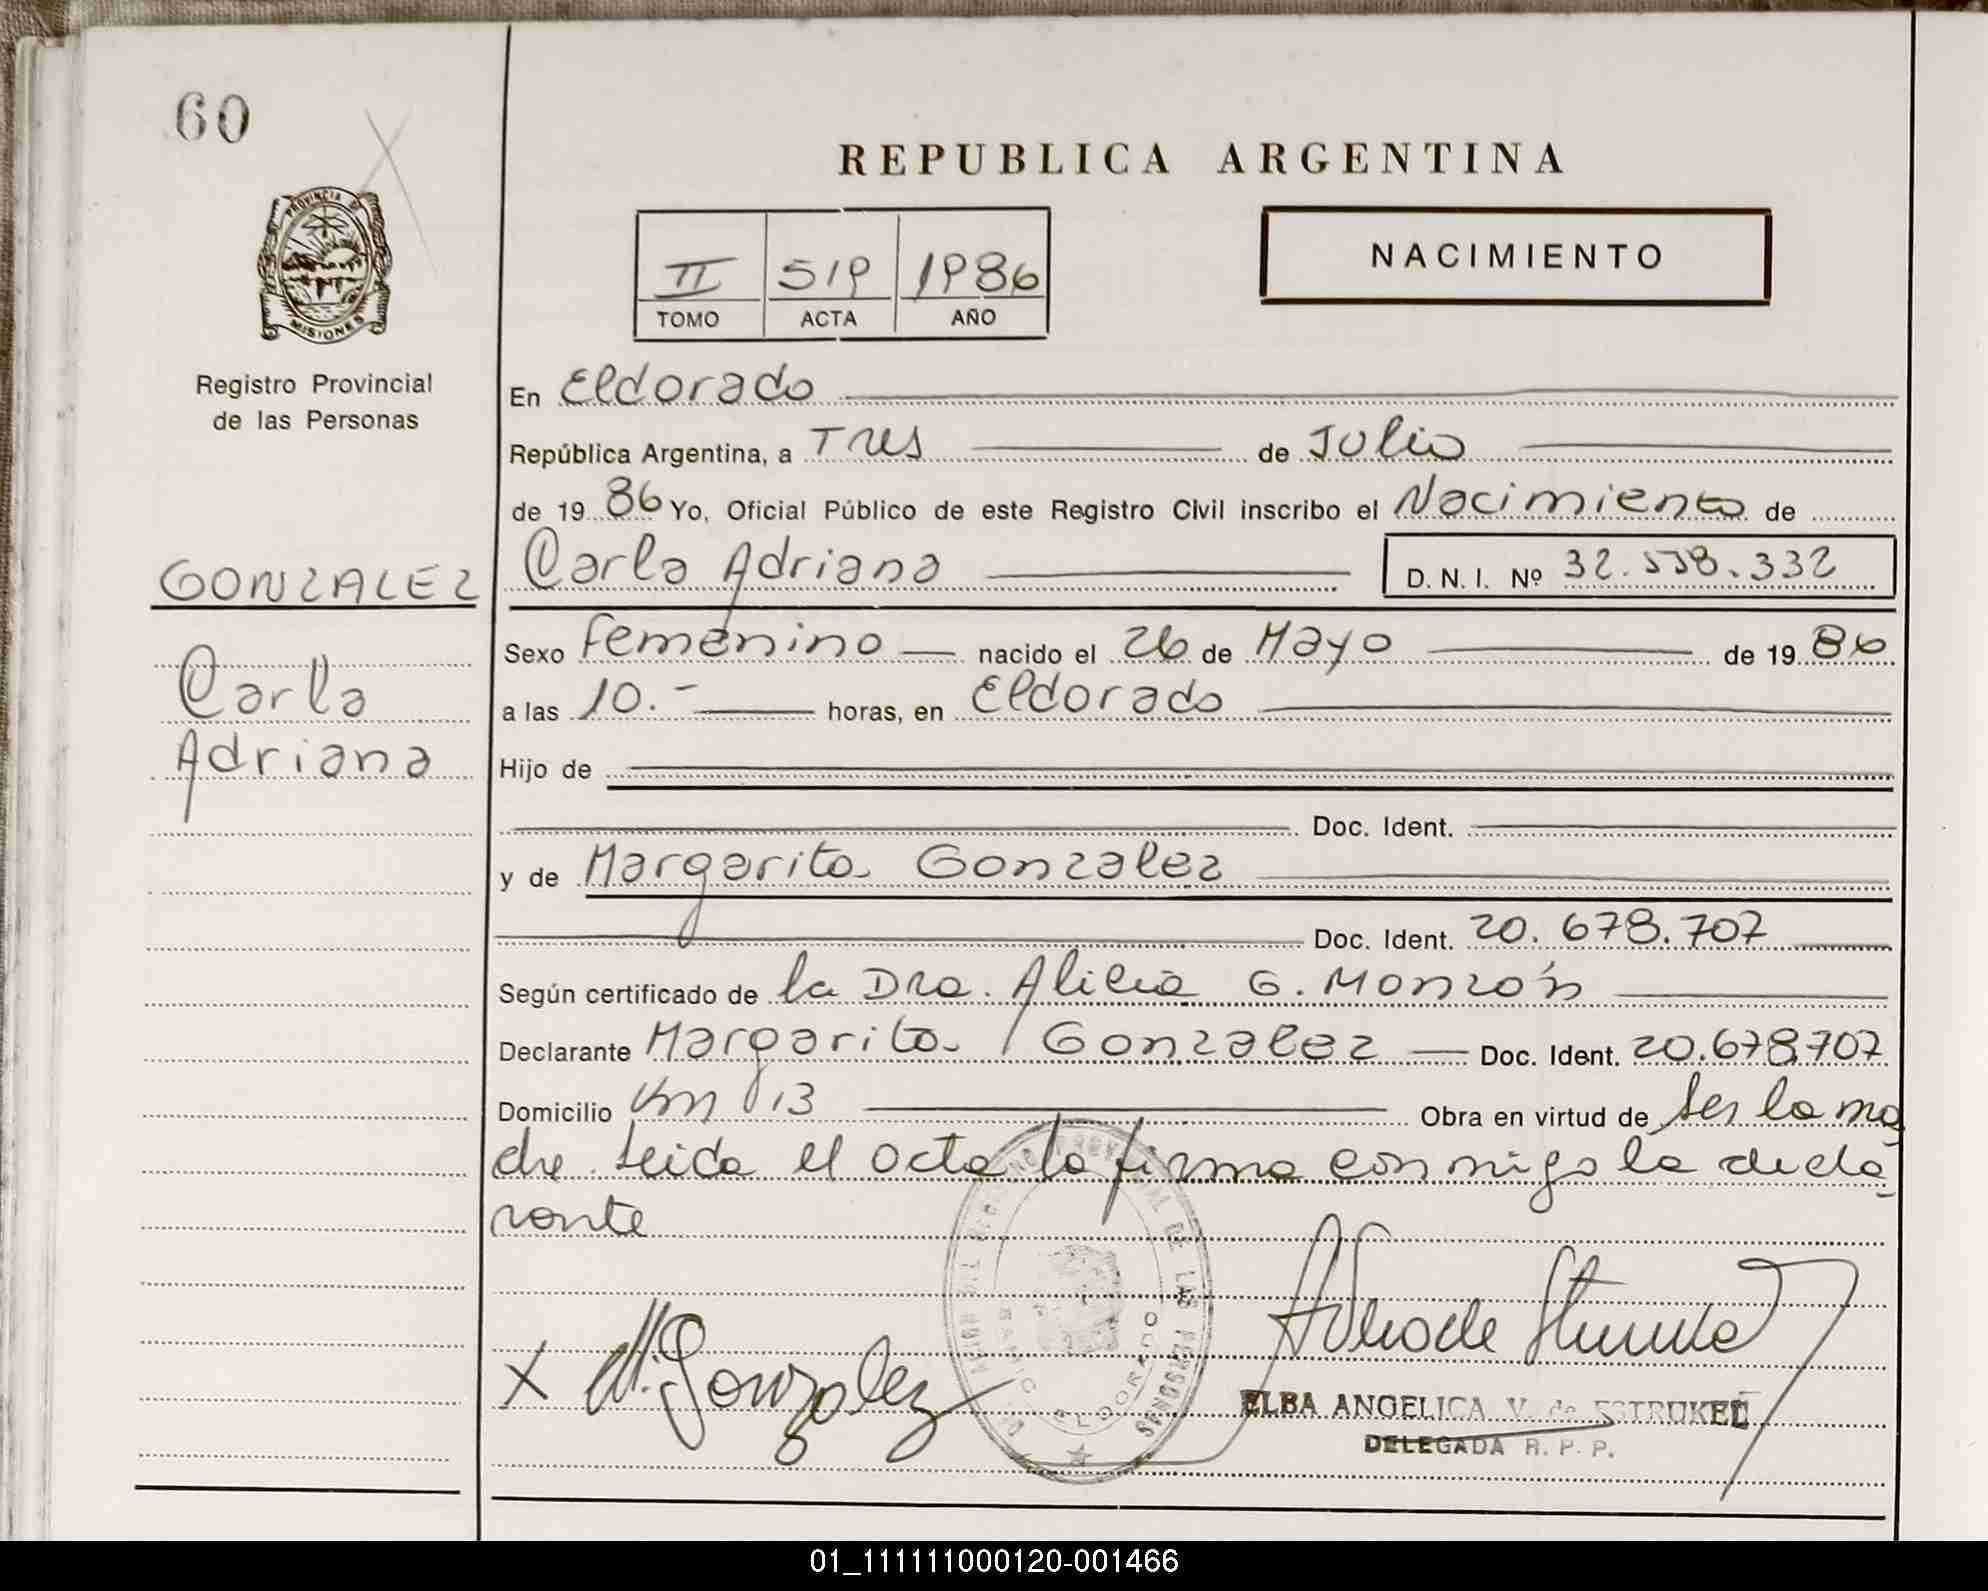 60
REPUBLICA ARGENTINA
PROVINCIA DE
MISIONES
II 519 1986
TOMO ACTA AÑO
NACIMIENTO
Registro Provincial
de las Personas
En Eldorado
República Argentina, a Tres de Julio
de 19 86 Yo, Oficial Público de este Registro Civil inscribo el Nacimiento de
GONZALEZ
Carla Adriana D. N. I. Nº 32.558.332
Sexo femenino nacido el 26 de Mayo de 19 86
Carla
a las 10.- horas, en Eldorado
Adriana
Hijo de
Doc. Ident.
y de Margarita Gonzalez
Doc. Ident. 20.678.707
Según certificado de la Dra. Alicia G. Monzón
Declarante Margarita Gonzalez Doc. Ident. 20.678.707
Domicilio Km 13 Obra en virtud de ser la ma
dre. Leida el acta la firma conmigo la decla
rante
DE LAS PERSONAS
ELDORADO
X M. Gonzalez
ELBA ANGELICA V. de ESTRUKEL
DELEGADA R. P. P.
01_111111000120-001466